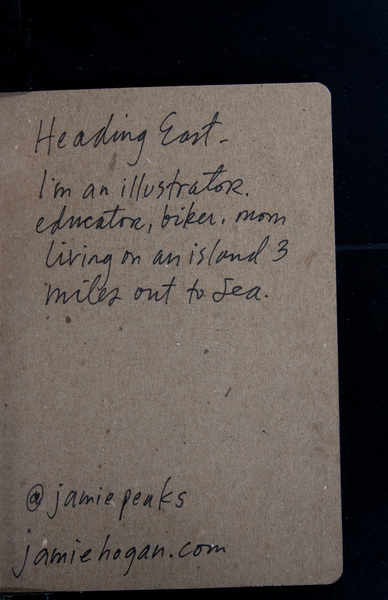 Heading East -
I'm an illustrator.
educator, biker, mom
living on an island 3
miles out to sea.
@jamiepeaks
jamiehogan.com